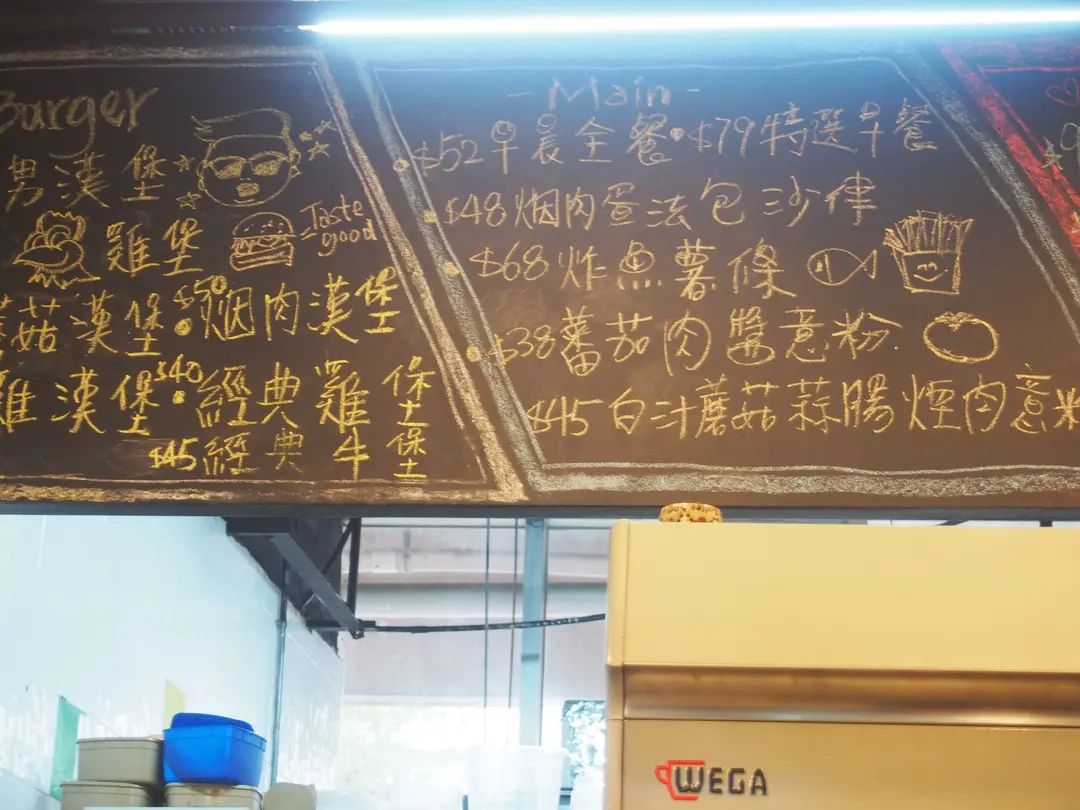 Burger
男漢堡
雞堡
Taste
good
菇漢堡 $50烟肉漢堡
雞漢堡 $40經典雞堡
$45經典牛堡
- Main -
$52早晨全餐 $79特選早餐
$48烟肉蛋法包沙律
$68炸魚薯條
$38蕃茄肉醬意粉
$45白汁蘑菇蒜腸煙肉意粉
WEGA